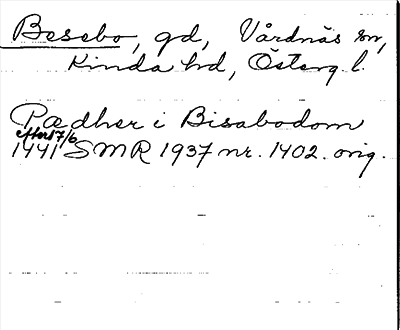 Besebo, gd, Vårdnäs sn,
Kinda hd, Österg l.
Pædher i Bisabodom
efter 17/6
1441 SMR 1937 nr. 1402. orig.